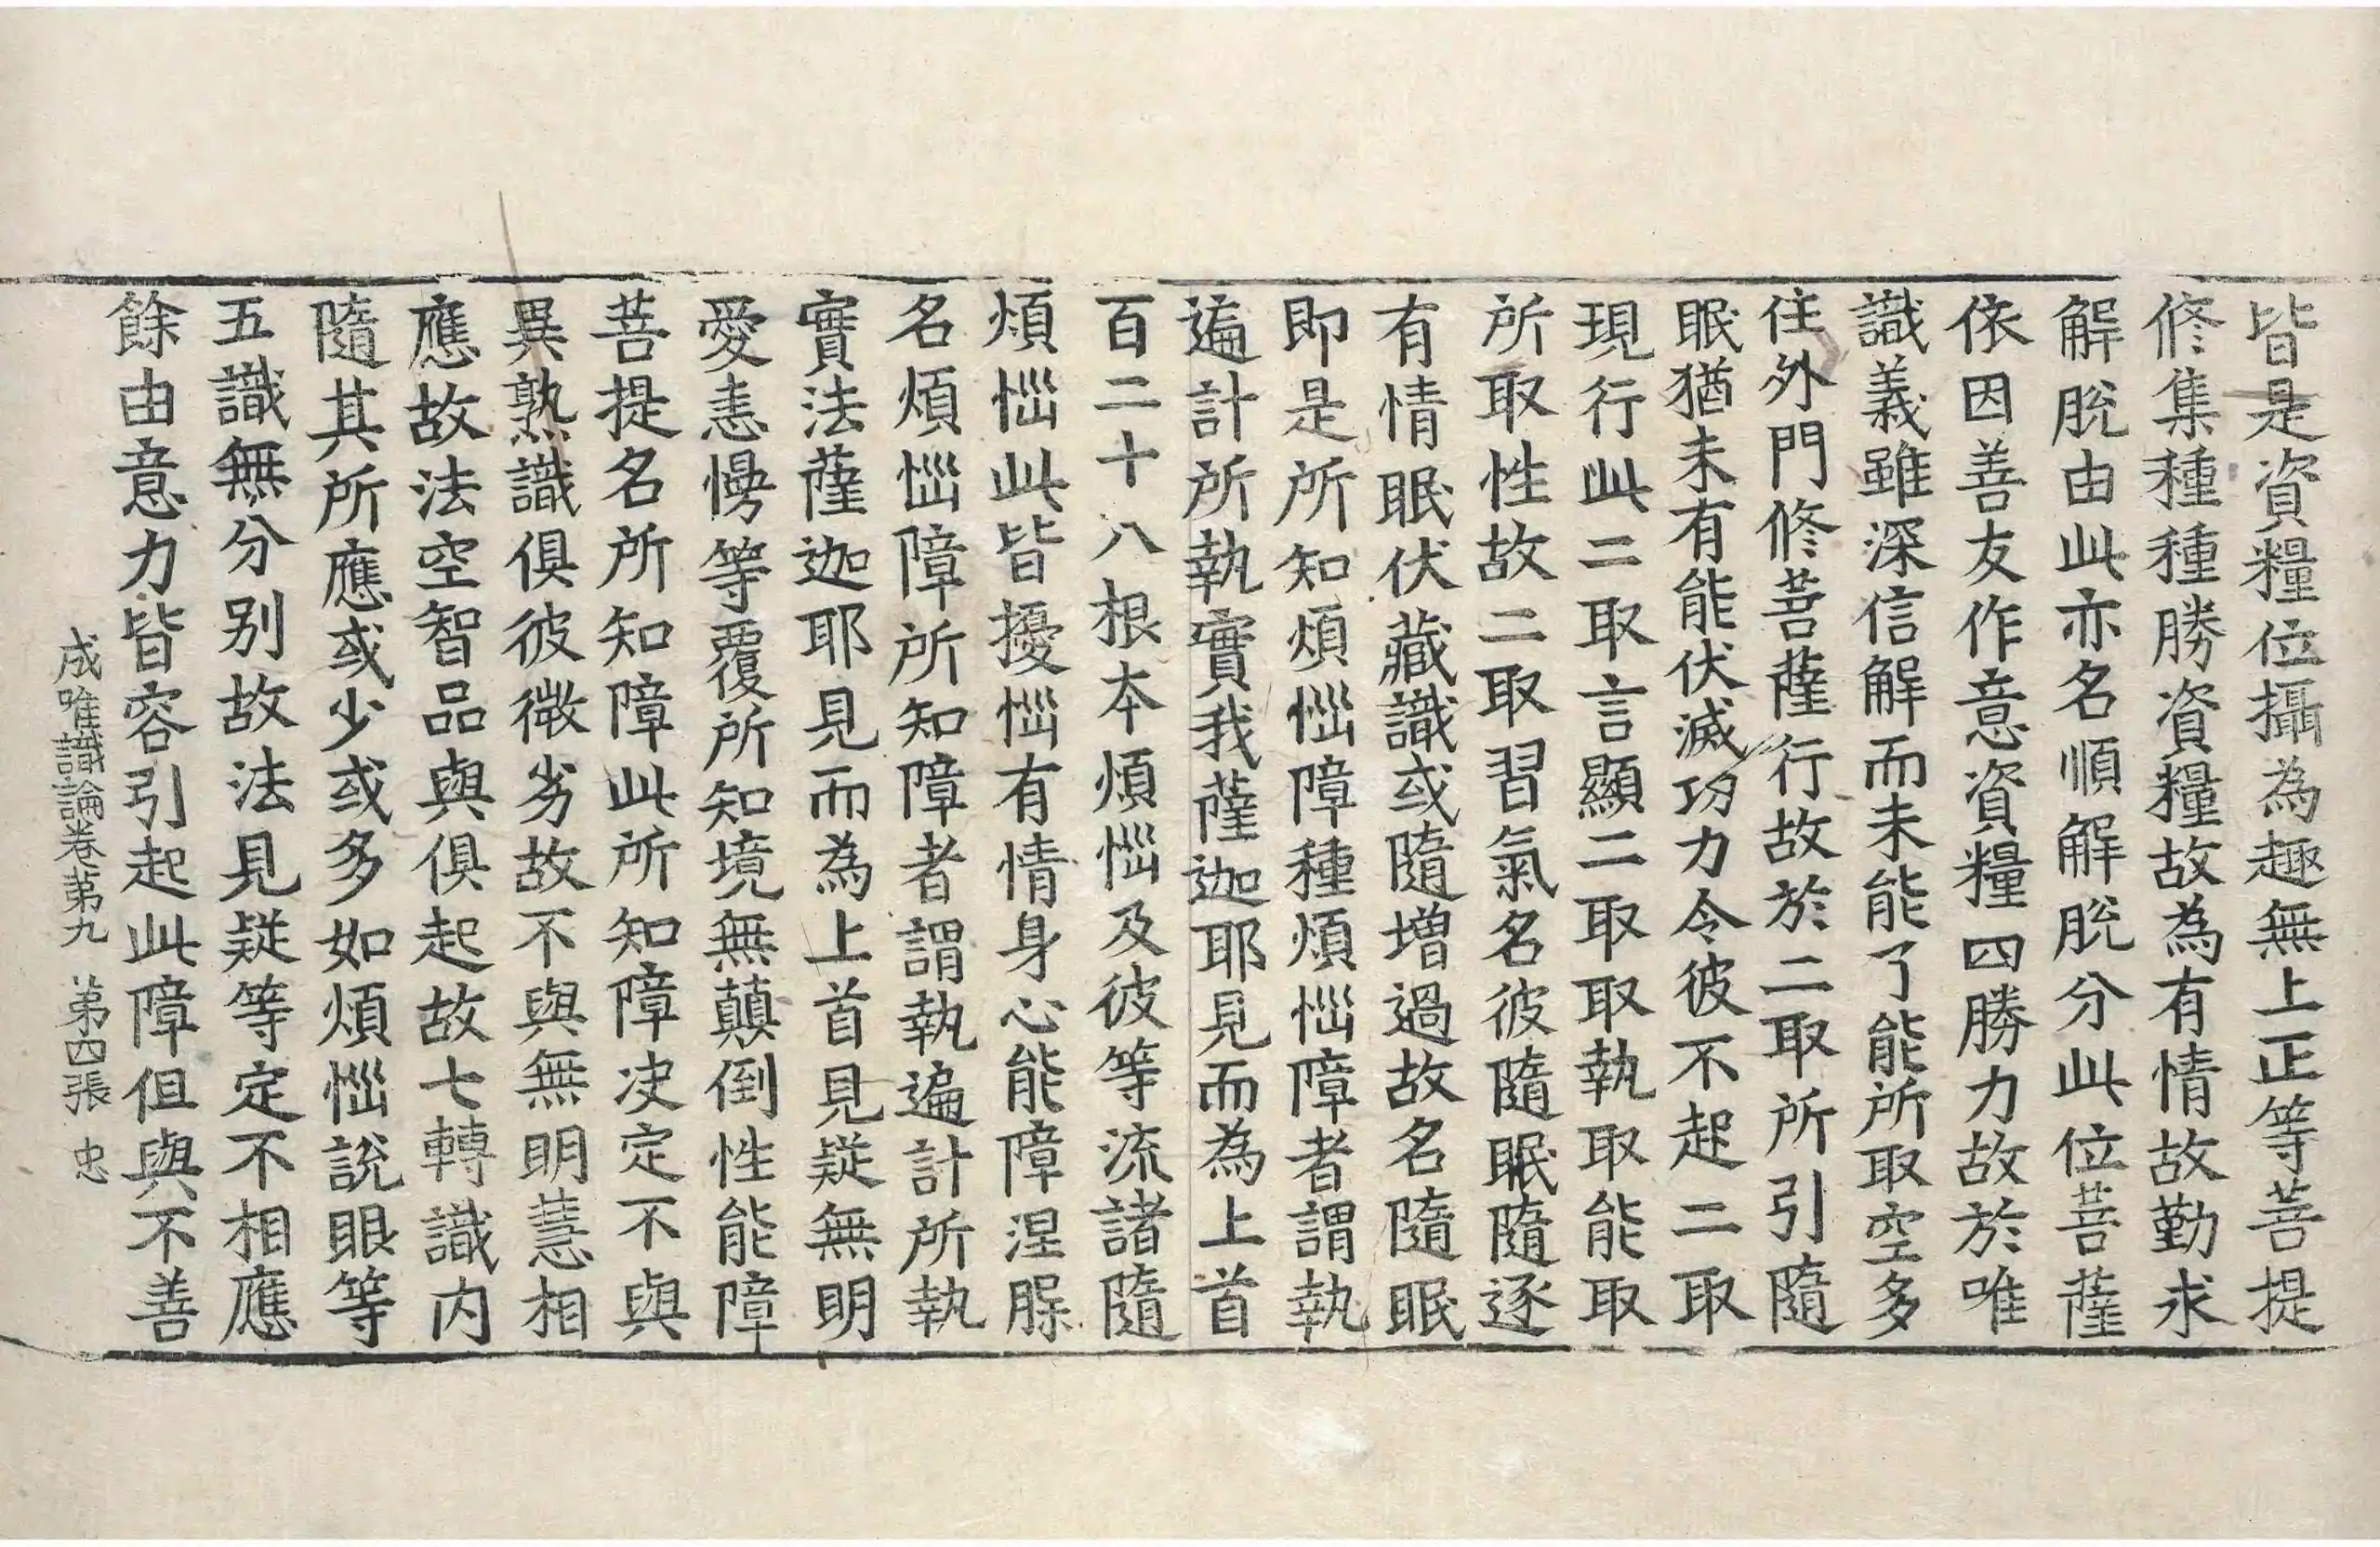 皆是資糧位攝為趣無上正等菩提
修集種種勝資糧故為有情故勤求
解脫由此亦名順解脫分此位菩薩
依因善友作意資糧四勝力故於唯
識義雖深信解而未能了能所取空多
住外門修菩薩行故於二取所引隨
眠猶未有能伏滅功力令彼不起二取
現行此二取言顯二取取執取能取
所取性故二取習氣名彼隨眠隨逐
有情眠伏藏識或隨增過故名隨眠
即是所知煩惱障種煩惱障者謂執
遍計所執實我薩迦耶見而為上首
百二十八根本煩惱及彼等流諸隨
煩惱此皆擾惱有情身心能障涅槃
名煩惱障所知障者謂執遍計所執
實法薩迦耶見而為上首見疑無明
愛恚慢等覆所知境無顛倒性能障
菩提名所知障此所知障決定不與
異熟識俱彼微劣故不與無明慧相
應故法空智品與俱起故七轉識內
隨其所應或少或多如煩惱說眼等
五識無分別故法見疑等定不相應
餘由意力皆容引起此障但與不善
成唯識論卷第九 第四張 忠